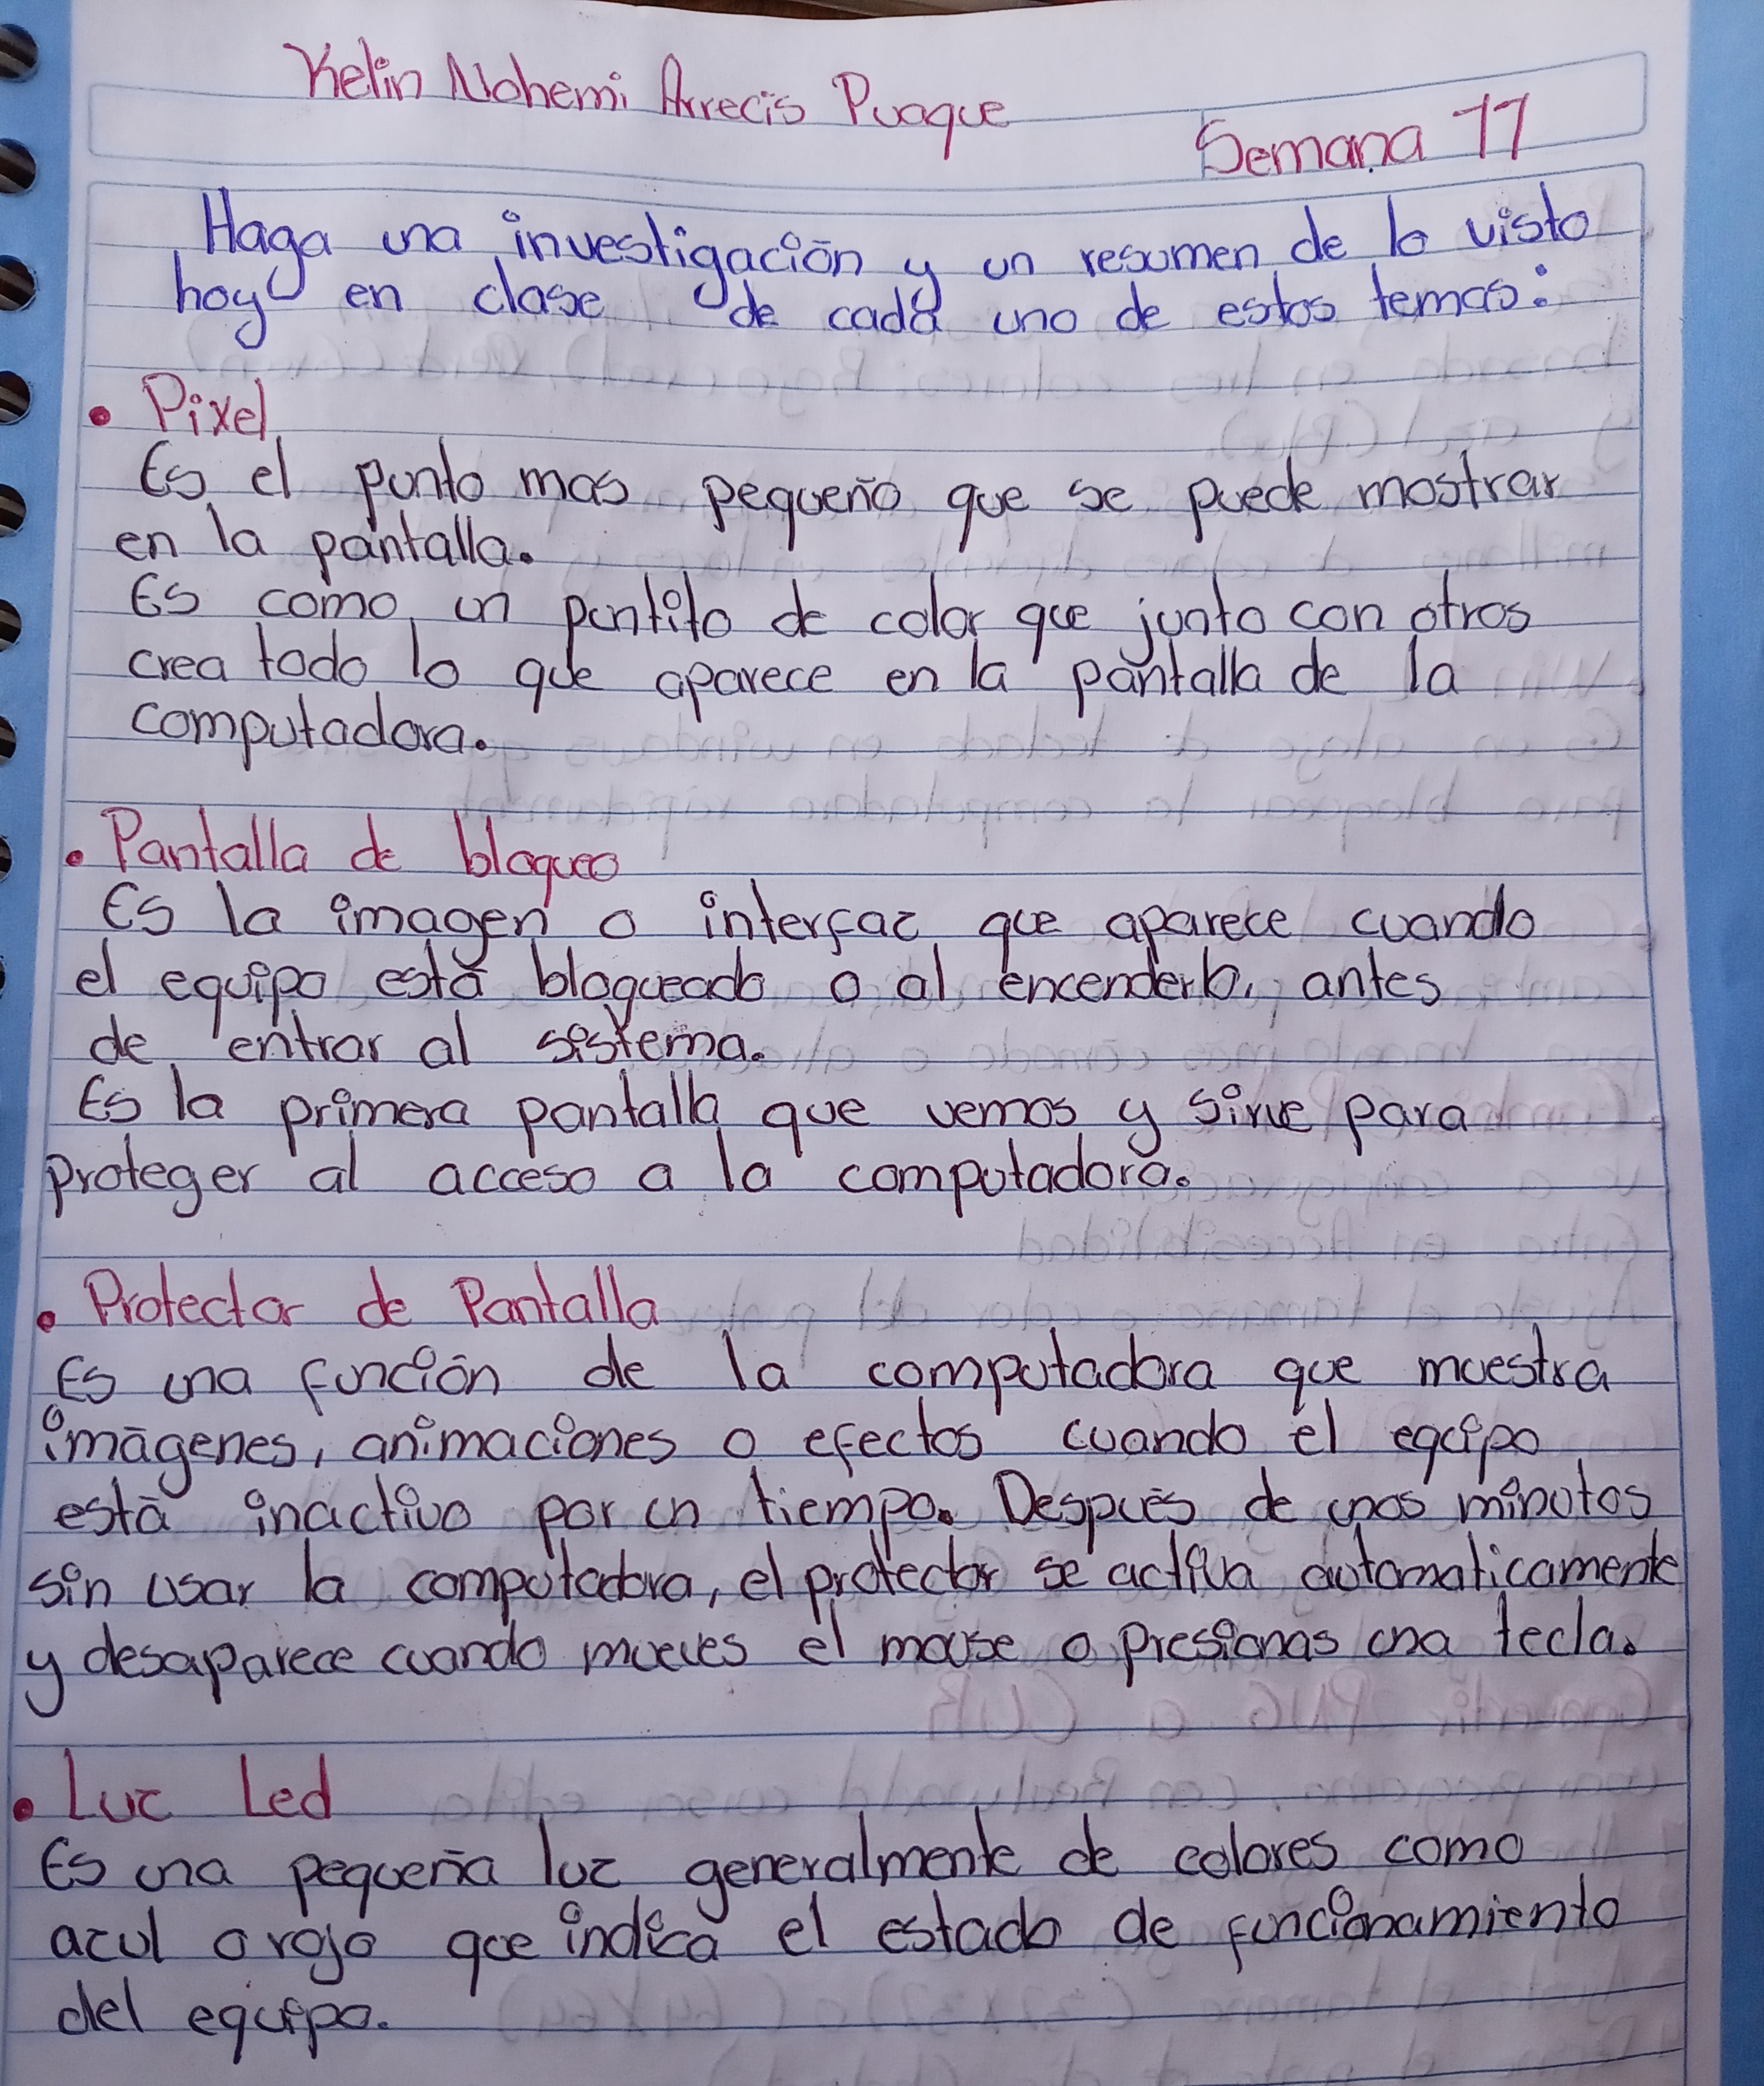 Kelin Nohemi Arrecis Puaque
Semana 11
Haga una investigación y un resumen de lo visto
hoy en clase de cada uno de estos temas:
• Pixel
Es el punto mas pequeño que se puede mostrar
en la pantalla.
Es como un puntito de color que junto con otros
crea todo lo que aparece en la pantalla de la
computadora.
• Pantalla de bloqueo
Es la imagen o interfaz que aparece cuando
el equipo está bloqueado o al encenderlo, antes
de entrar al sistema.
Es la primera pantalla que vemos y sirve para
proteger al acceso a la computadora.
• Protector de Pantalla
Es una función de la computadora que muestra
imágenes, animaciones o efectos cuando el equipo
está inactivo por un tiempo. Después de unos minutos
sin usar la computadora, el protector se activa automaticamente
y desaparece cuando mueves el mouse o presionas una tecla.
• Luz Led
Es una pequeña luz generalmente de colores como
azul o rojo que indica el estado de funcionamiento
del equipo.